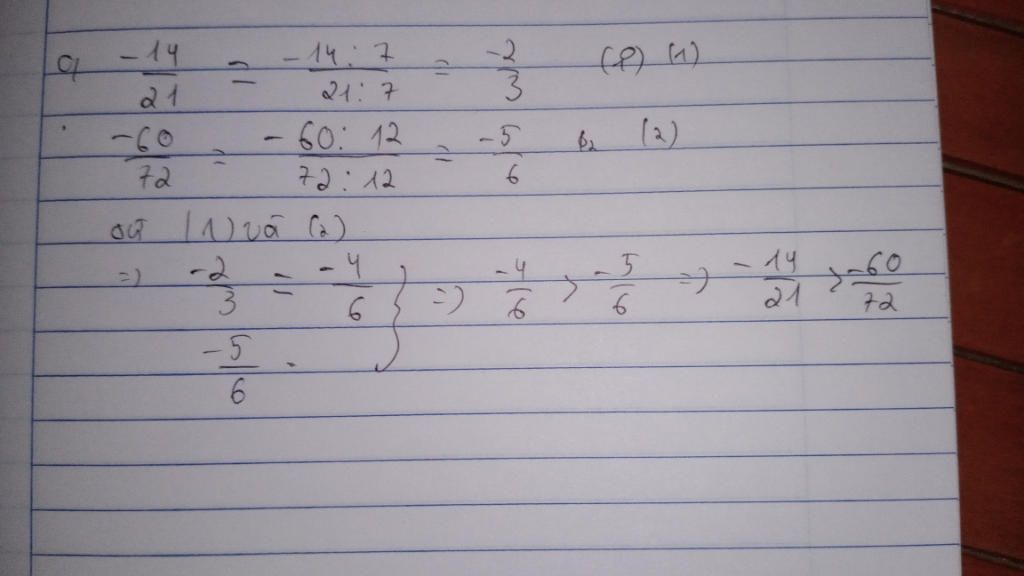 a) -14/21 = -14:7/21:7 = -2/3 (1)
-60/72 = -60:12/72:12 = -5/6 (2)
(1) và (2)
=) -2/3 = -4/6 } =) -4/6 > -5/6 =) -14/21 > -60/72
-5/6